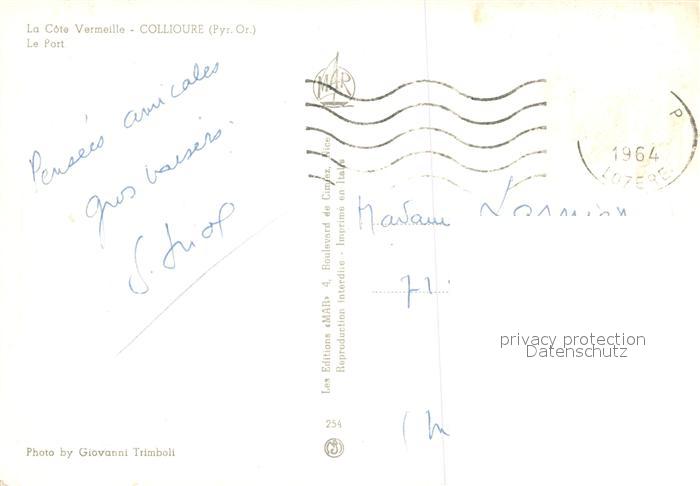 La Côte Vermeille - COLLIOURE (Pyr. Or.)
Le Port
Pensées amicales
gros baisers.
MAR
P
1964
LOZERE
Madame
Les Editions «MAR» 4, Boulevard de Cimiez, Nice
Reproduction interdite - Imprimé en Italie
privacy protection
Datenschutz
254
Photo by Giovanni Trimboli